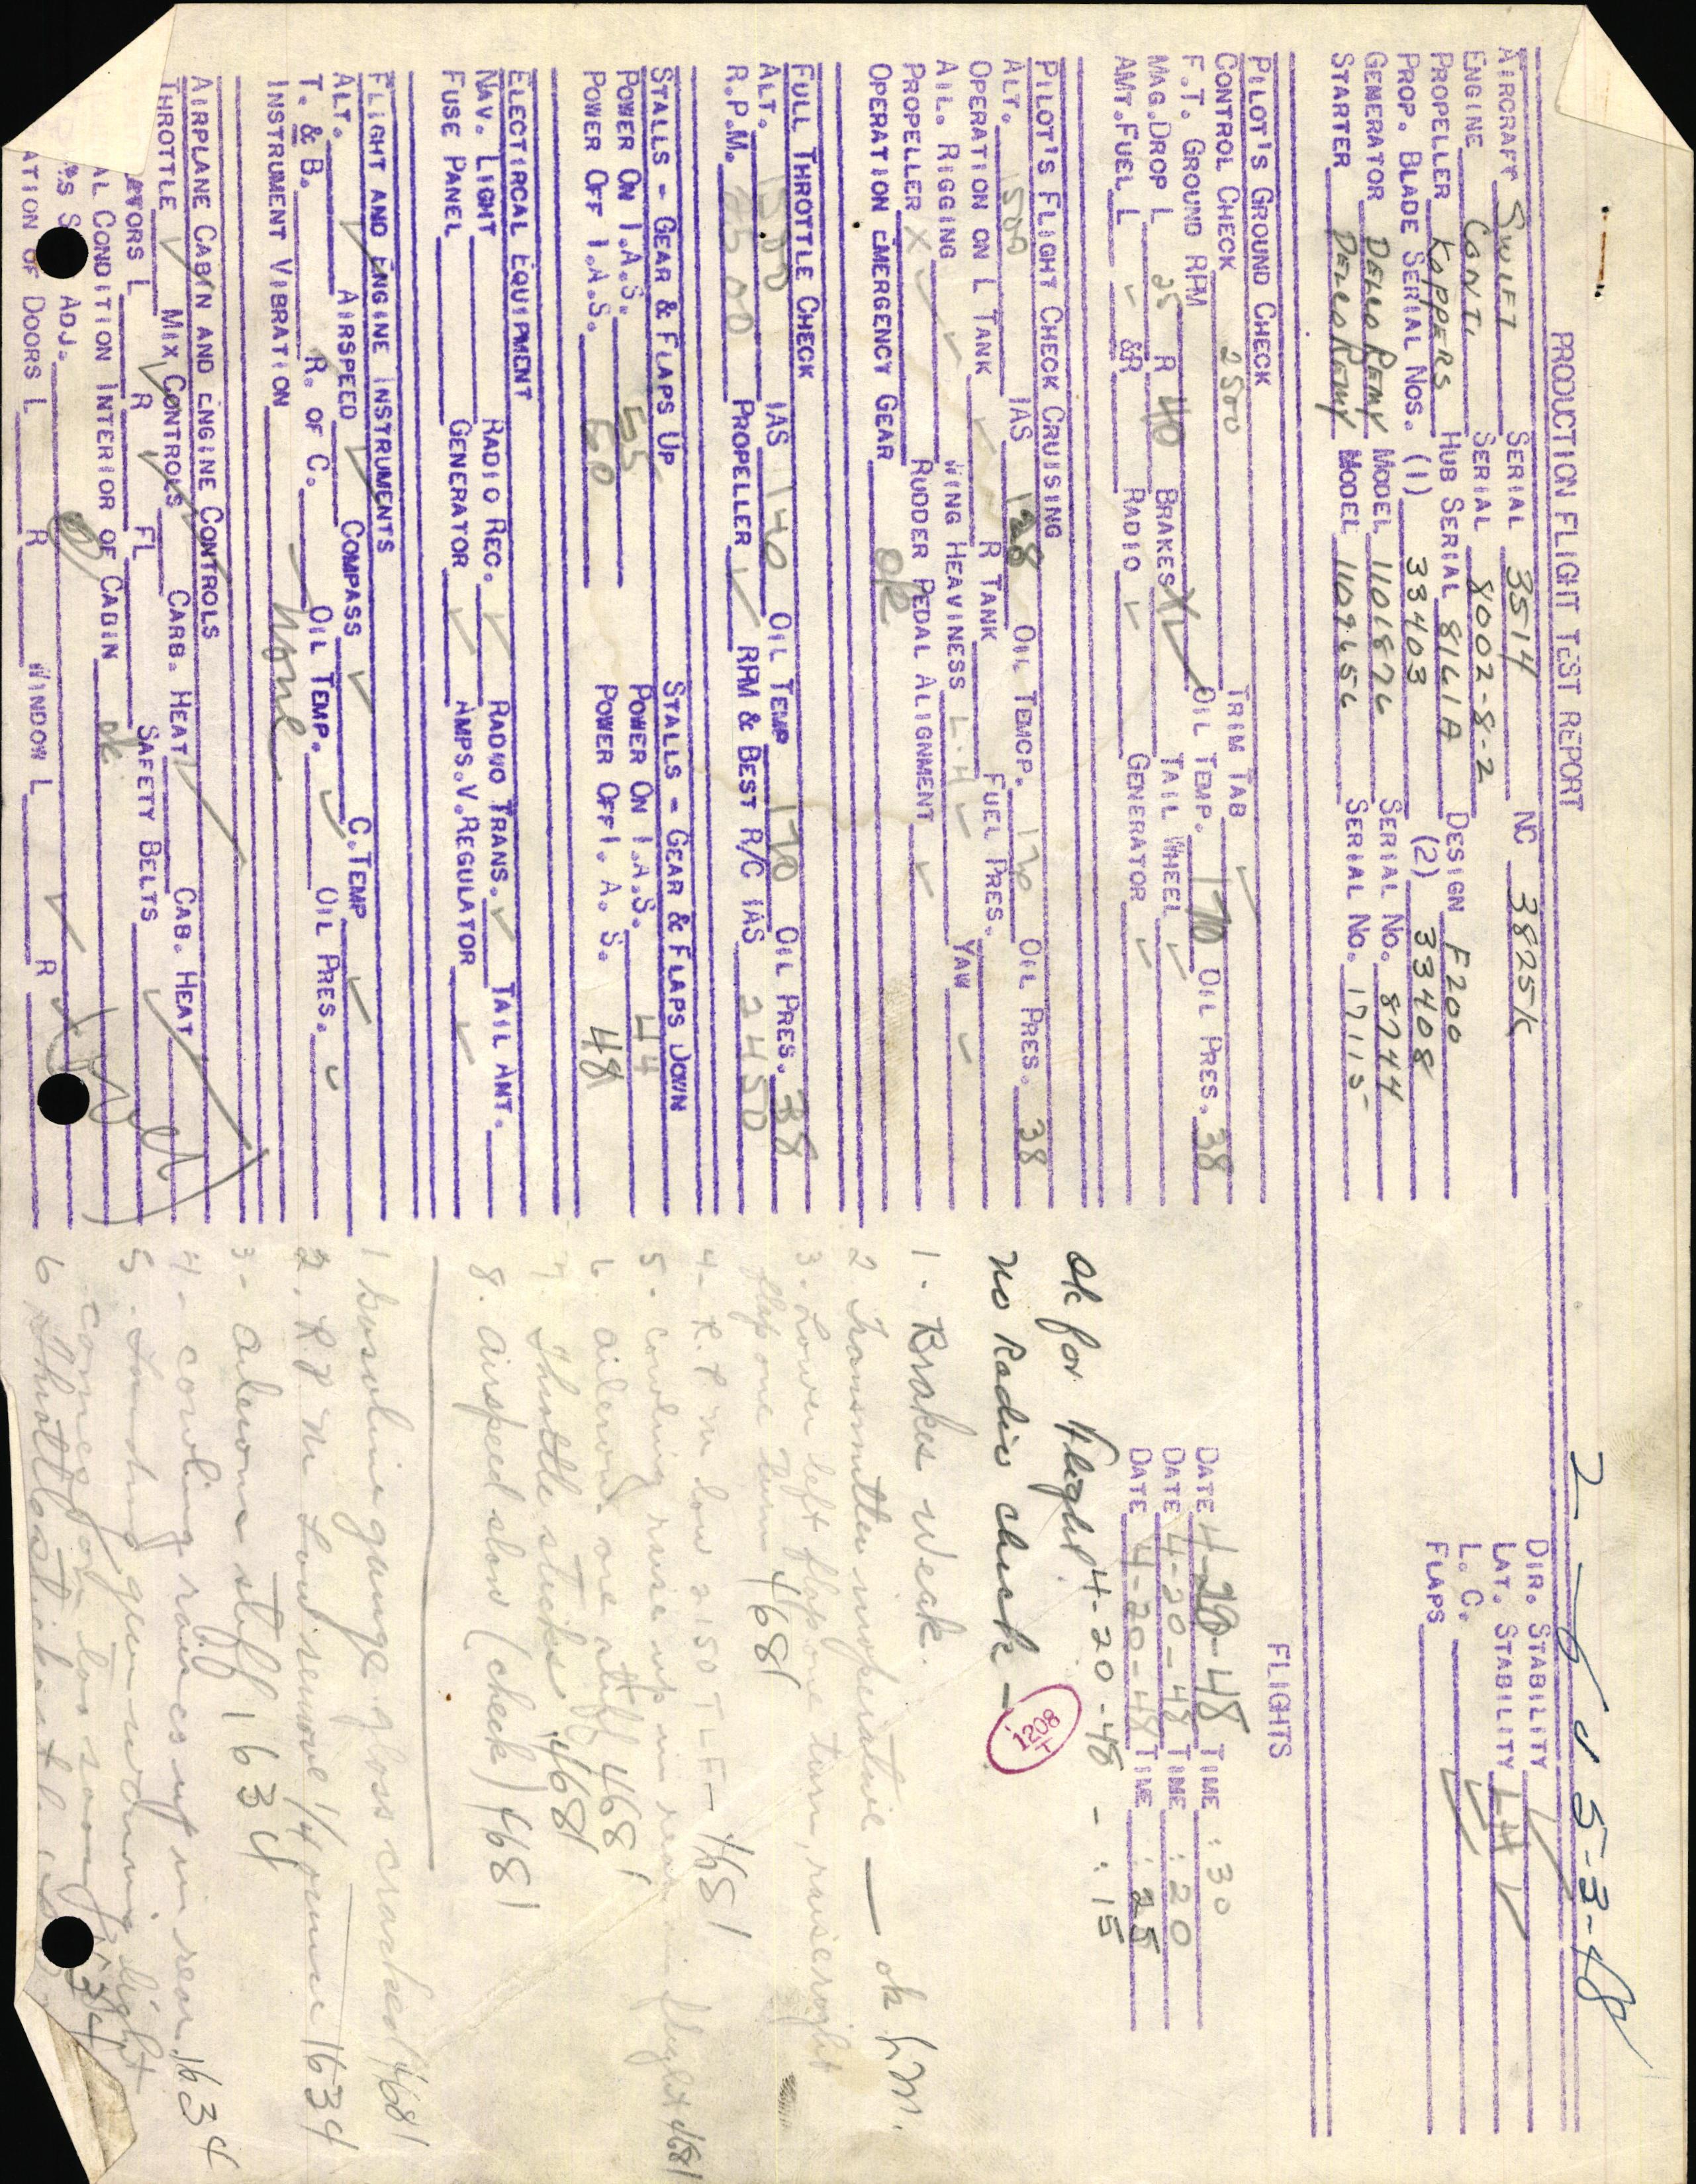 2-6 U 5-3-48
PRODUCTION FLIGHT TEST REPORT
AIRCRAFT SWIFT SERIAL 3514 NC 3825K
ENGINE CONT. SERIAL 8002-8-2
PROPELLER KOPPERS HUB SERIAL 8161A DESIGN F200
PROP. BLADE SERIAL NOS. (1) 33403 (2) 33408
GENERATOR DELCO REMY MODEL 1101876 SERIAL NO. 8744
STARTER DELCO REMY MODEL 1109656 SERIAL NO. 17115
DIR. STABILITY
LAT. STABILITY LH
L. C.
FLAPS
PILOT'S GROUND CHECK
CONTROL CHECK TRIM TAB
F.T. GROUND RPM 2500 OIL TEMP. 170 OIL PRES. 38
MAG. DROP L 25 R 40 BRAKES X TAIL WHEEL
AMT. FUEL L &R RADIO GENERATOR
PILOT'S FLIGHT CHECK CRUISING
ALT. 1500 IAS 128 OIL TEMCP. 170 OIL PRES. 38
OPERATION ON L TANK R TANK FUEL PRES.
AIL. RIGGING WING HEAVINESS L.H YAW
PROPELLER X RUDDER PEDAL ALIGNMENT
OPERATION EMERGENCY GEAR ok
FULL THROTTLE CHECK
ALT. 1500 IAS 140 OIL TEMP 170 OIL PRES. 38
R.P.M. 2500 PROPELLER RPM & BEST R/C IAS 2450
STALLS - GEAR & FLAPS UP STALLS - GEAR & FLAPS DOWN
POWER ON I.A.S. 55 POWER ON I.A.S. 44
POWER OFF I.A.S. 60 POWER OFF I. A. S. 48
ELECTIRCAL EQUIPMENT
NAV. LIGHT RADIO REC. RADIO TRANS. TAIL ANT.
FUSE PANEL GENERATOR AMPS.V.REGULATOR
FLIGHT AND ENGINE INSTRUMENTS
ALT. AIRSPEED COMPASS C.TEMP
T. & B. R. OF C. OIL TEMP. OIL PRES.
INSTRUMENT VIBRATION none
AIRPLANE CABIN AND ENGINE CONTROLS
THROTTLE MIX CONTROLS CARB. HEAT CAB. HEAT
L R FL SAFETY BELTS
AL CONDITION INTERIOR OF CABIN ok
ADJ.
ATION OF DOORS L R WINDOW L R
FLIGHTS
DATE 4-20-48 TIME :30
DATE 4-20-48 TIME :20
DATE 4-20-48 TIME :25
4-20-48 - :15
ok for flight
no Radio check -
1208
T
1- Brakes weak.
2 Transmitter inoperative — ok
3. Lower left flap one turn, raise right
flap one turn 4681
4- R.P.M low 2150 4681
5- cowling raise up in rear in flight 4681
6. aileron one stiff 4681
7 Throttle sticks 4681
8. airspeed slow (check) 4681
1 Gasoline gauge glass cracked 4681
2. R.P.M Low remove 1/4 1634
3- ailerons stiff 1634
4- cowling raises up in rear 1634
5. Landing gear warning light
comes on too soon
6 Throttle